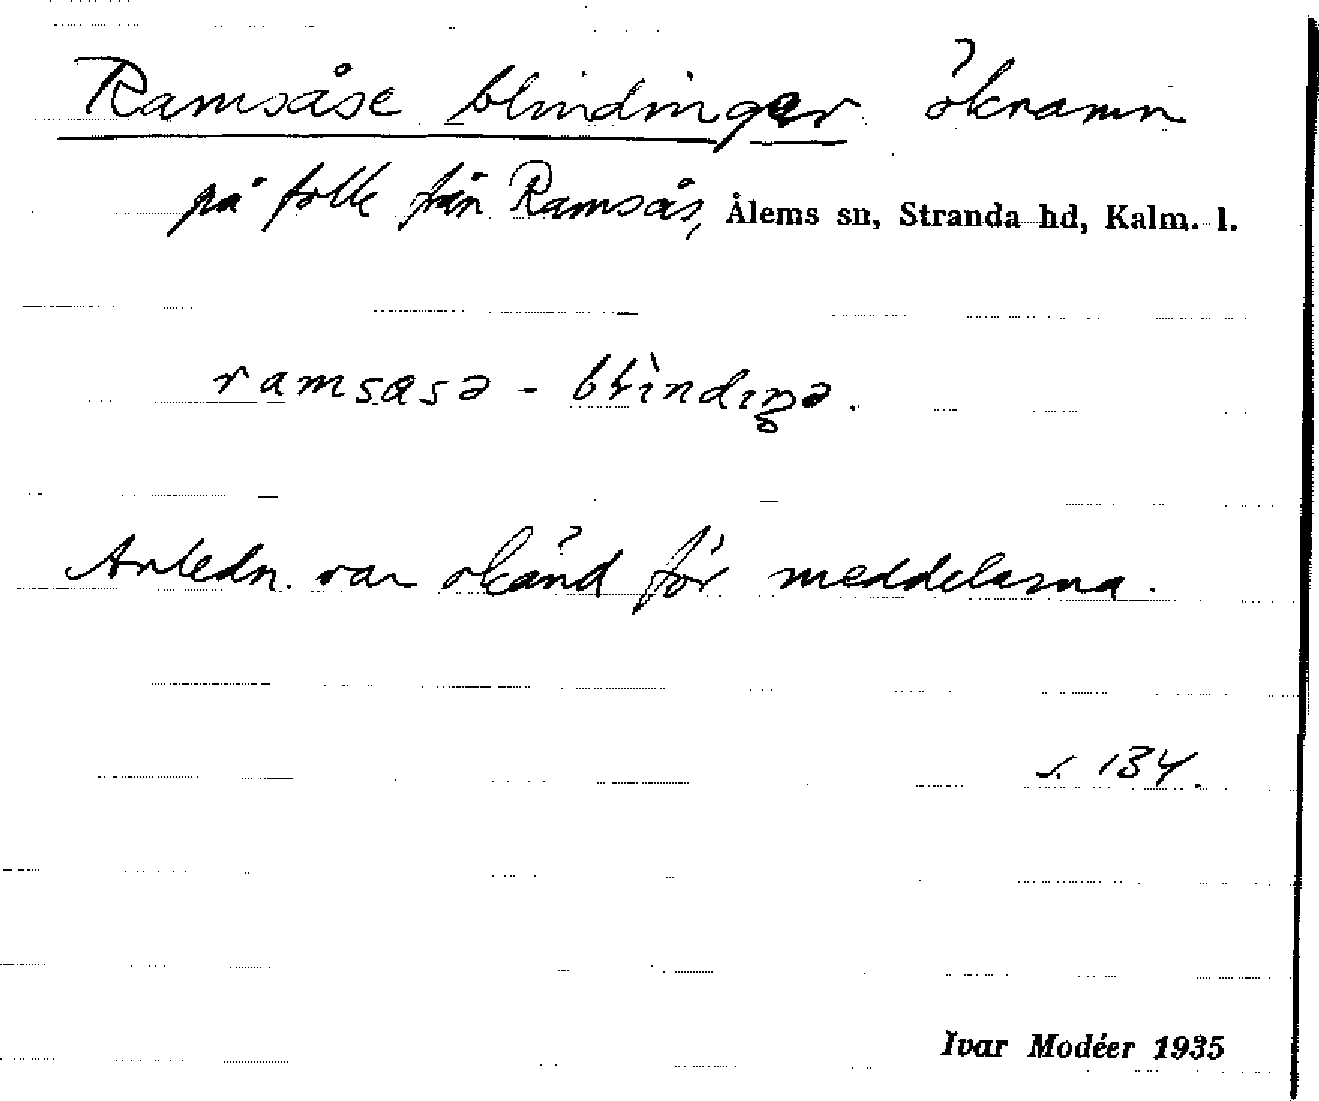 Ramsåse blindingar öknamn
på folk från Ramsås, Ålems sn, Stranda hd, Kalm. l.
ramsasə - blìndiŋə.
Anledn. var okänd för meddelarna.
s. 134.
Ivar Modéer 1935